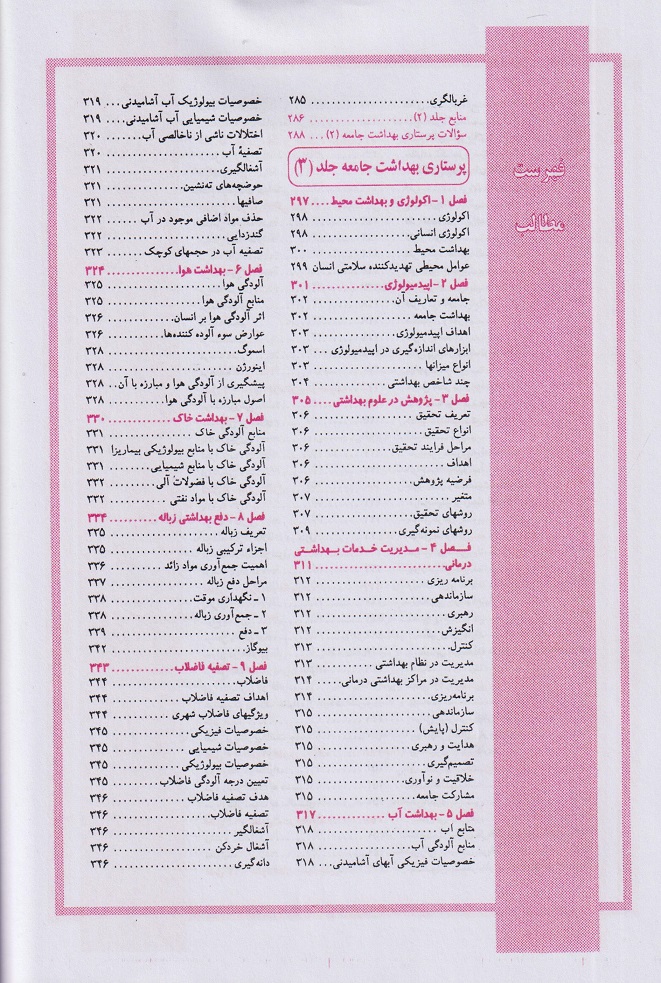 فهرست
مطالب
غربالگری ۲۸۵
منابع جلد (۲) ۲۸۶
سؤالات پرستاری بهداشت جامعه (۲) ... ۲۸۸
پرستاری بهداشت جامعه جلد (۳)
فصل ۱ - اکولوژی و بهداشت محیط .... ۲۹۷
اکولوژی ۲۹۸
اکولوژی انسانی ۲۹۸
بهداشت محیط ۳۰۰
عوامل محیطی تهدیدکننده سلامتی انسان ۲۹۹
فصل ۲ - اپیدمیولوژی ۳۰۱
جامعه و تعاریف آن ۳۰۲
بهداشت جامعه ۳۰۲
اهداف اپیدمیولوژی ۳۰۳
ابزارهای اندازه‌گیری در اپیدمیولوژی ... ۳۰۳
انواع میزانها ۳۰۳
چند شاخص بهداشتی ۳۰۴
فصل ۳ - پژوهش در علوم بهداشتی .... ۳۰۵
تعریف تحقیق ۳۰۶
انواع تحقیق ۳۰۶
مراحل فرایند تحقیق ۳۰۶
اهداف ۳۰۶
فرضیه پژوهش ۳۰۶
متغیر ۳۰۷
روشهای تحقیق ۳۰۷
روشهای نمونه‌گیری ۳۰۹
فصل ۴ - مدیریت خدمات بهداشتی
درمانی ۳۱۱
برنامه ریزی ۳۱۲
سازماندهی ۳۱۲
رهبری ۳۱۲
انگیزش ۳۱۲
کنترل ۳۱۳
مدیریت در نظام بهداشتی ۳۱۳
مدیریت در مراکز بهداشتی درمانی ۳۱۴
برنامه‌ریزی ۳۱۴
سازماندهی ۳۱۵
کنترل (پایش) ۳۱۵
هدایت و رهبری ۳۱۵
تصمیم‌گیری ۳۱۵
خلاقیت و نوآوری ۳۱۵
مشارکت جامعه ۳۱۵
فصل ۵ - بهداشت آب ۳۱۷
منابع آب ۳۱۸
منابع آلودگی آب ۳۱۸
خصوصیات فیزیکی آبهای آشامیدنی ... ۳۱۸
خصوصیات بیولوژیک آب آشامیدنی ... ۳۱۹
خصوصیات شیمیایی آب آشامیدنی .... ۳۱۹
اختلالات ناشی از ناخالصی آب ۳۲۰
تصفیهٔ آب ۳۲۰
آشغالگیری ۳۲۱
حوضچه‌های ته‌نشین ۳۲۱
صافیها ۳۲۱
حذف مواد اضافی موجود در آب ۳۲۲
گندزدایی ۳۲۲
تصفیه آب در حجمهای کوچک ۳۲۳
فصل ۶ - بهداشت هوا ۳۲۴
آلودگی هوا ۳۲۵
منابع آلودگی هوا ۳۲۵
اثر آلودگی هوا بر انسان ۳۲۶
عوارض سوء آلوده کننده‌ها ۳۲۶
اسموک ۳۲۸
اینورژن ۳۲۸
پیشگیری از آلودگی هوا و مبارزه با آن .. ۳۲۸
اصول مبارزه با آلودگی هوا ۳۲۸
فصل ۷ - بهداشت خاک ۳۳۰
منابع آلودگی خاک ۳۳۱
آلودگی خاک با منابع بیولوژیکی بیماریزا ۳۳۱
آلودگی خاک با منابع شیمیایی ۳۳۱
آلودگی خاک با فضولات آلی ۳۳۲
آلودگی خاک با مواد نفتی ۳۳۲
فصل ۸ - دفع بهداشتی زباله ۳۳۴
تعریف زباله ۳۳۵
اجزاء ترکیبی زباله ۳۳۵
اهمیت جمع‌آوری مواد زائد ۳۳۶
مراحل دفع زباله ۳۳۷
۱ ـ نگهداری موقت ۳۳۸
۲ ـ جمع‌آوری زباله ۳۳۸
۳ ـ دفع ۳۳۹
بیوگاز ۳۴۲
فصل ۹ - تصفیه فاضلاب ۳۴۳
فاضلاب ۳۴۴
اهداف تصفیه فاضلاب ۳۴۴
ویژگیهای فاضلاب شهری ۳۴۴
خصوصیات فیزیکی ۳۴۵
خصوصیات شیمیایی ۳۴۵
خصوصیات بیولوژیکی ۳۴۵
تعیین درجه آلودگی فاضلاب ۳۴۵
هدف تصفیه فاضلاب ۳۴۶
تصفیه فاضلاب ۳۴۶
آشغالگیر ۳۴۶
آشغال خردکن ۳۴۶
دانه‌گیری ۳۴۶